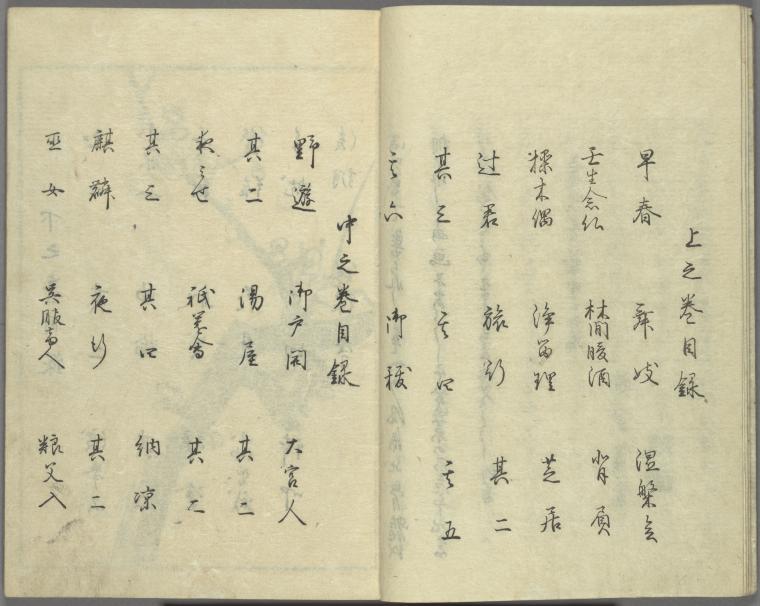 上之巻目録
早春　舞妓　涅槃会
壬生念仏　林間暖酒　背負
操木偶　浄留理　芝居
辻君　旅行　其二
其三　其四　其五
其六　御祓
中之巻目録
野遊　御戸開　大宮人
其二　湯屋　其二
夜みせ　祇薗会　其二
其三　其四　納凉
麒麟　夜行　其二
巫女　呉服商人　粮父入